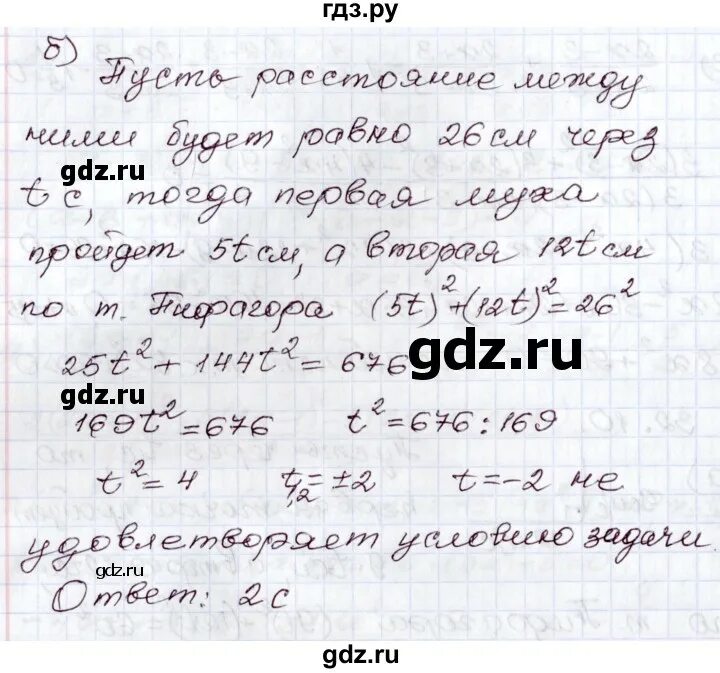 гдз.ру
б)
Пусть расстояние между
ними будет равно 26 см через
gdz.ru
gdz.ru
t с, тогда первая муха
пройдет 5t см, а вторая 12t см
по т. Пифагора (5t)²+(12t)²=26²
gdz.ru
25t²+144t²=676
gdz.ru
gdz.ru
169t²=676 t²=676:169
t²=4 t₁,₂=±2 t=-2 не
удовлетворяет условию задачи.
gdz.ru
gdz.ru
Ответ: 2с
gdz.ru